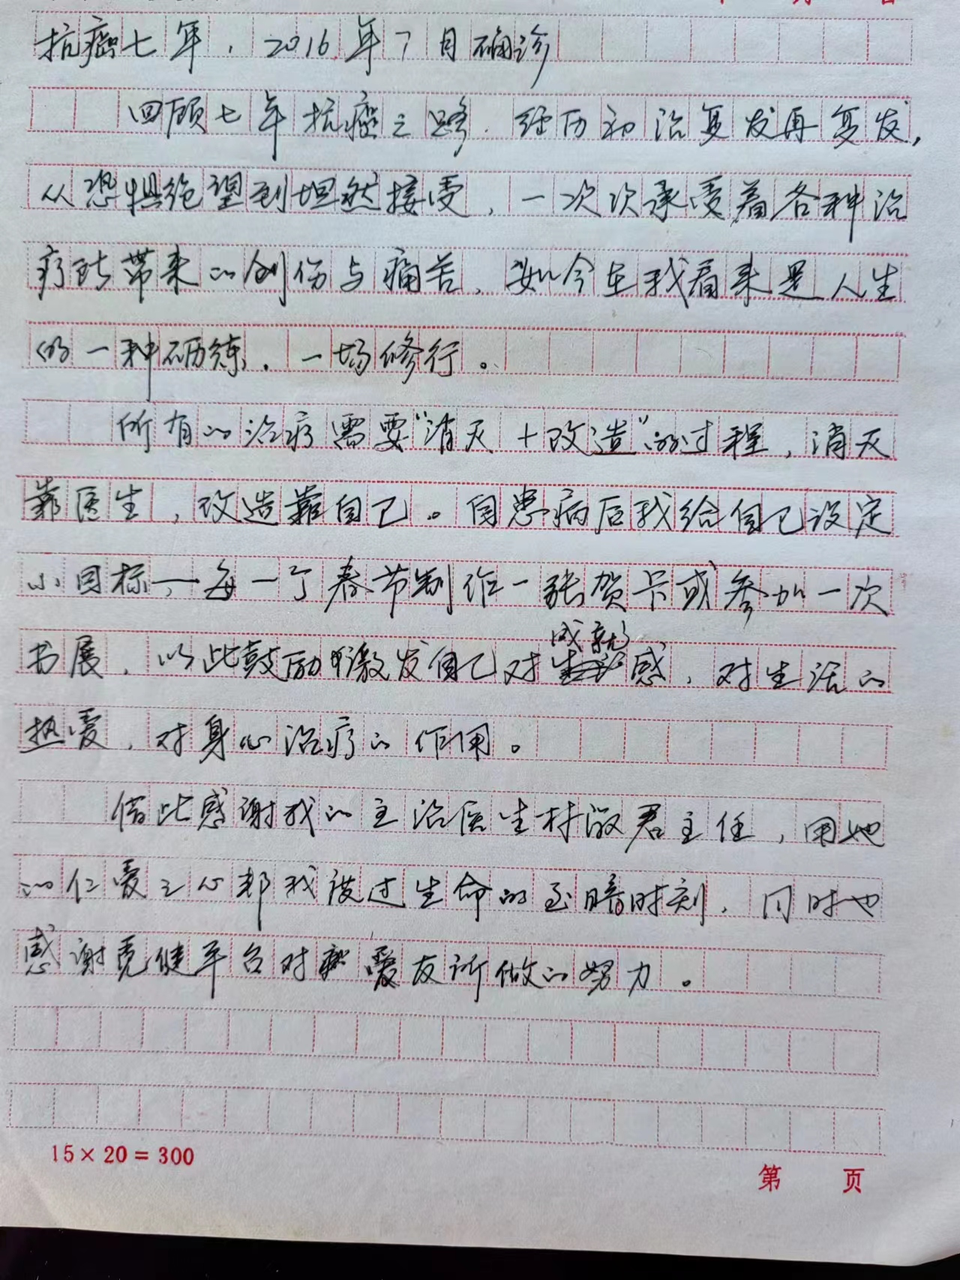 抗癌七年，2016年7月确诊
回顾七年抗癌之路．经历初治复发再复发，
从恐惧绝望到坦然接受，一次次承受着各种治
疗所带来的创伤与痛苦，如今在我看来是人生
的一种砺练．一场修行。
所有的治疗需要“消灭＋改造”的过程，消灭
靠医生，改造靠自己。自患病后我给自己设定
小目标——每一个春节制作一张贺卡或参加一次
书展，以此鼓励激发自己对成就感，对生活的
热爱，对身心治疗的作用。
借此感谢我的主治医生林淑君主任，用她
的仁爱之心帮我渡过生命的至暗时刻，同时也
感谢觅健平台对爱友所做的努力。
15×20＝300
第 页